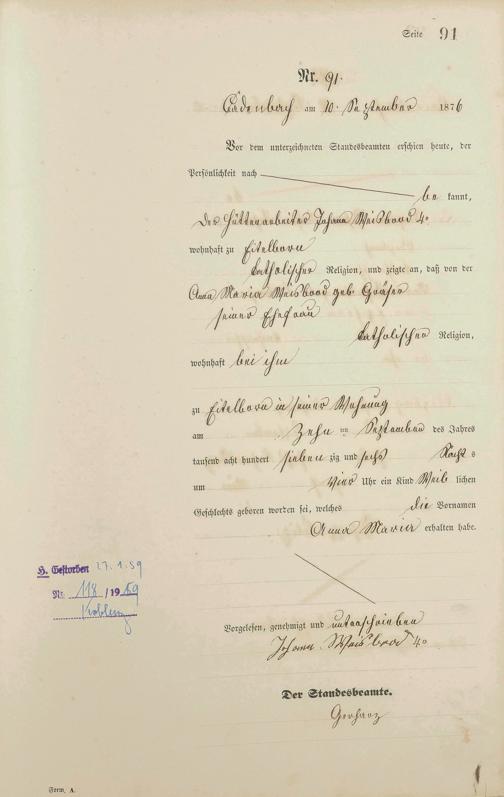 Seite 91
Nr. 91.
Cadenbach am 10. September 1876
Vor dem unterzeichneten Standesbeamten erschien heute, der
Persönlichkeit nach
be kannt,
der Hüttenarbeiter Johann Weisbrod 4.
wohnhaft zu Eitelborn
katholischer Religion, und zeigte an, daß von der
Anna Maria Weisbrod geb. Gräser
seiner Ehefrau
katholischer Religion,
wohnhaft bei ihm
zu Eitelborn in seiner Wohnung
am Zehn ten September des Jahres
tausend acht hundert sieben zig und sechs Nacht s
um vier Uhr ein Kind Weib lichen
Geschlechts geboren worden sei, welches die Vornamen
Anna Maria erhalten habe.
Vorgelesen, genehmigt und unterschrieben
Johann Weisbrod 4.
Der Standesbeamte.
Gerharz
H. Gestorben 27.1.59
Nr. 118 / 19 59
Koblenz
Form. A.